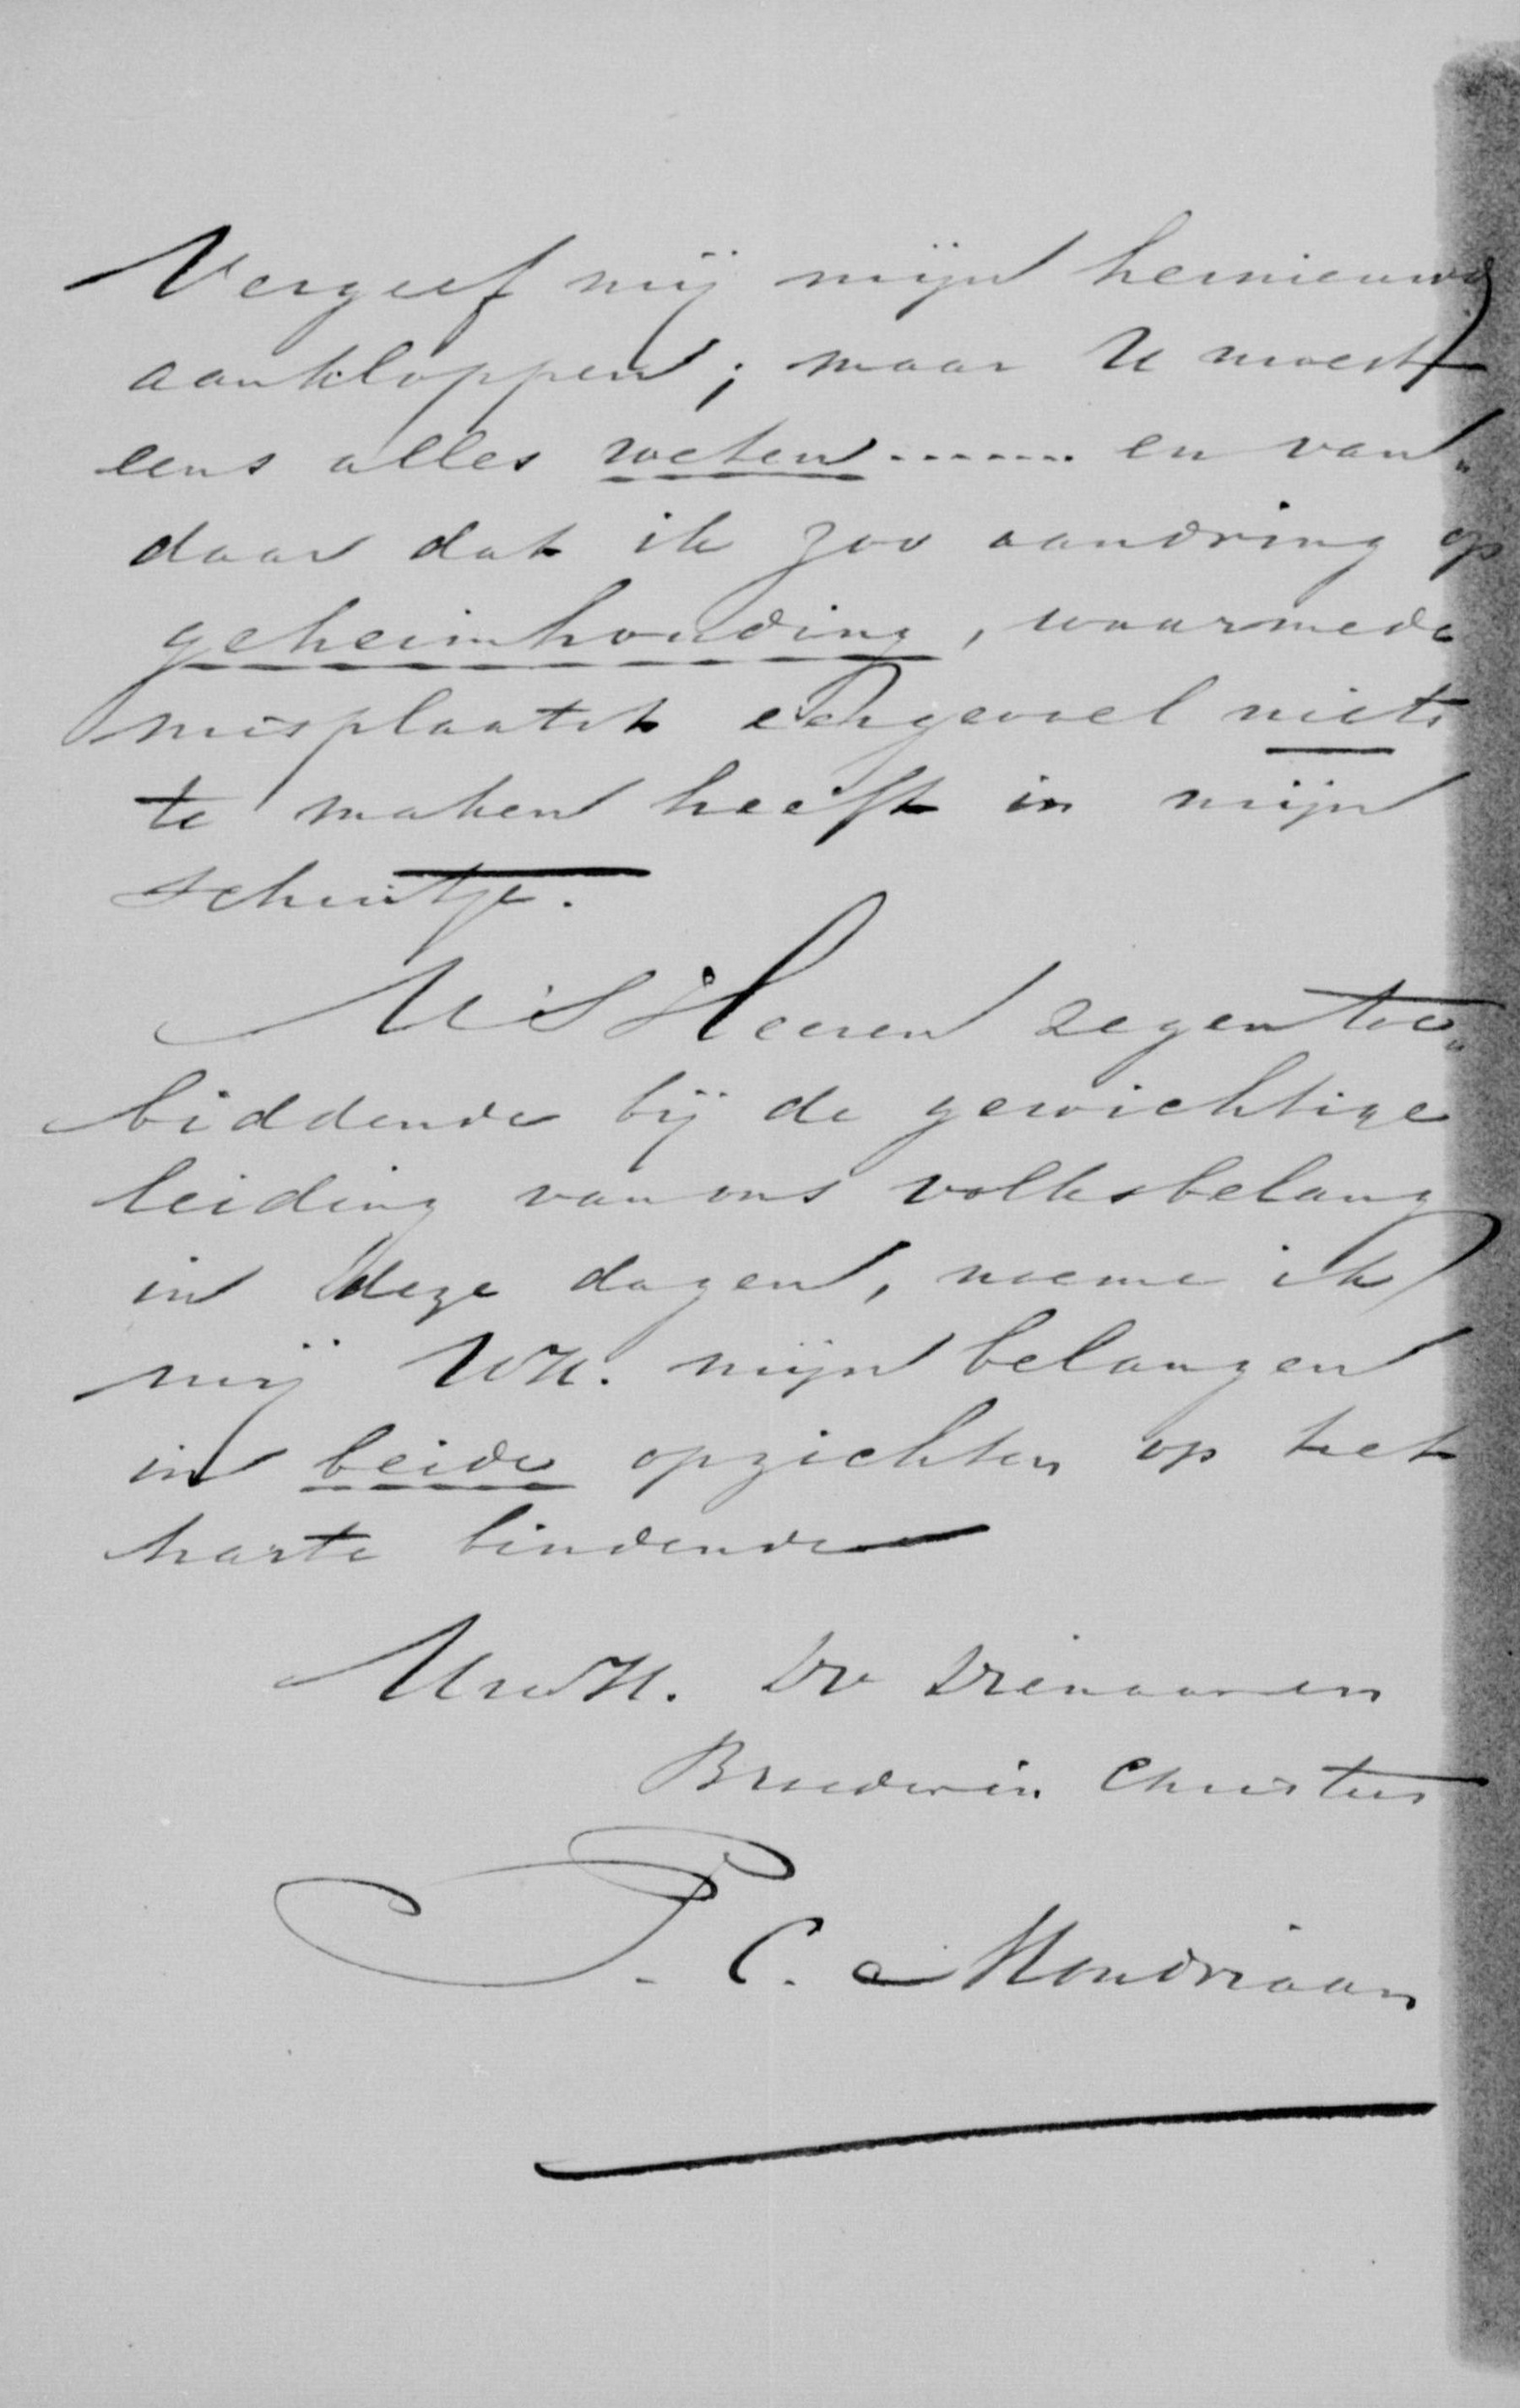 Vergeef mij mijn hernieuwd
aankloppen; maar U moest
eens alles weten ....... en van„
daar dat ik zoo aandring op
geheimhouding, waarmede
misplaatst eergevoel niets
te maken heeft in mijn
schuitje.
U 's Heeren zegen toe„
biddende bij de gewichtige
leiding van ons volksbelang
in deze dagen, noeme ik
mij WH. mijn belangen
in beide opzichten op het
harte bindende
UwH. Dr Dienaar en
Broeder in Christus
P. C. Mondriaan